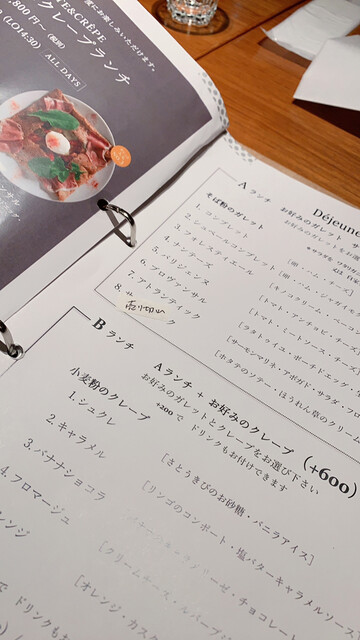 度にお楽しみいただけます。
TE&CRÊPE
クレープランチ
800円
(税別)
(LO14:30)
ALL DAYS
A ランチ
Déjeune
お好みのガレット
お好みのガレットをお選
そば粉のガレット
1. コンプレット
[卵・ハム・チーズ]
2. シュペールコンプレット
[卵・ハム・ジャガイモ
3. フォレスティエール
[キノコクリーム・ベー
4. ナンテーズ
5. パリジェンヌ
[トマト・アンチョビ・チーズ
6. プロヴァンサル
[トマト・ミートソース・チーズ
7. アトランティック
[ラタトゥイユ・ポーチドエッグ・
[サーモンマリネ・アボガド・サラダ・フロ
8.
売り切れ
ク
[ホタテのソテー・ほうれん草のクリー
B ランチ
Aランチ + お好みのクレープ (+600)
お好みのガレットとクレープをお選び下さい
+200で ドリンクもお付けできます
小麦粉のクレープ
1. シュクレ
[さとうきびのお砂糖・バニラアイス]
2. キャラメル
[リンゴのコンポート・塩バターキャラメルソース
3. バナナショコラ
・チョコレー
4. フロマージュ
[クリームチーズ・ルバーブ
レンジ
[オレンジ・カスタ
で ドリンクもお